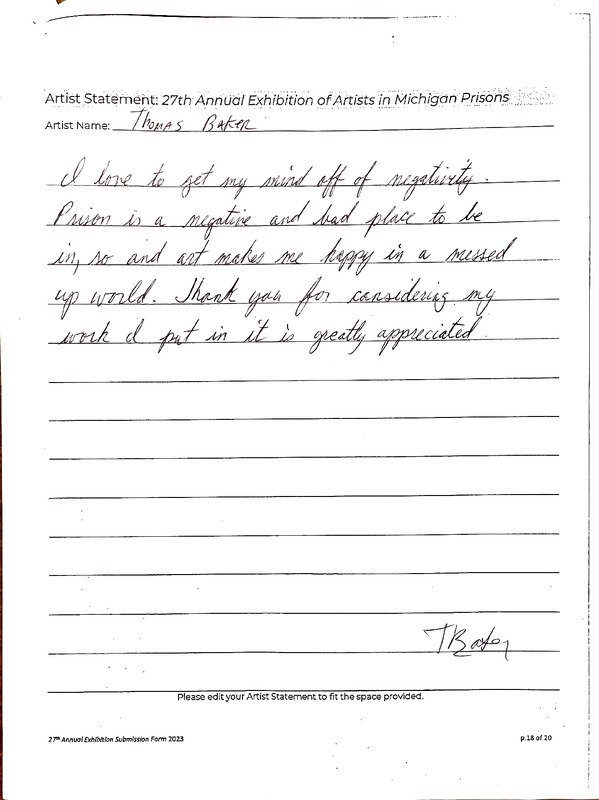 Artist Statement: 27th Annual Exhibition of Artists in Michigan Prisons
Artist Name: Thomas Baker
I love to get my mind off of negativity.
Prison is a negative and bad place to be
in, so and art makes me happy in a messed
up world. Thank you for considering my
work I put in it is greatly appreciated.
T Baker
Please edit your Artist Statement to fit the space provided.
27th Annual Exhibition Submission Form 2023
p.18 of 20